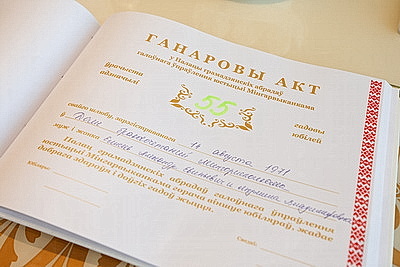 ГАНАРОВЫ АКТ
у Палацы грамадзянскіх абрадаў
галоўнага ўпраўлення юстыцыі Мінгарвыканкама
урачыста адзначылі
55
гадовы юбілей
свайго шлюбу, зарэгістраванага 14 августа 1971
в Доме
муж і жонка
Палац грамадзянскіх абрадаў галоўнага ўпраўлення
юстыцыі Мінгарвыканкама горача віншуе юбіляраў, жадае
добрага здароўя і доўгіх гадоў жыцця.
Юбіляры:
Сведкі: